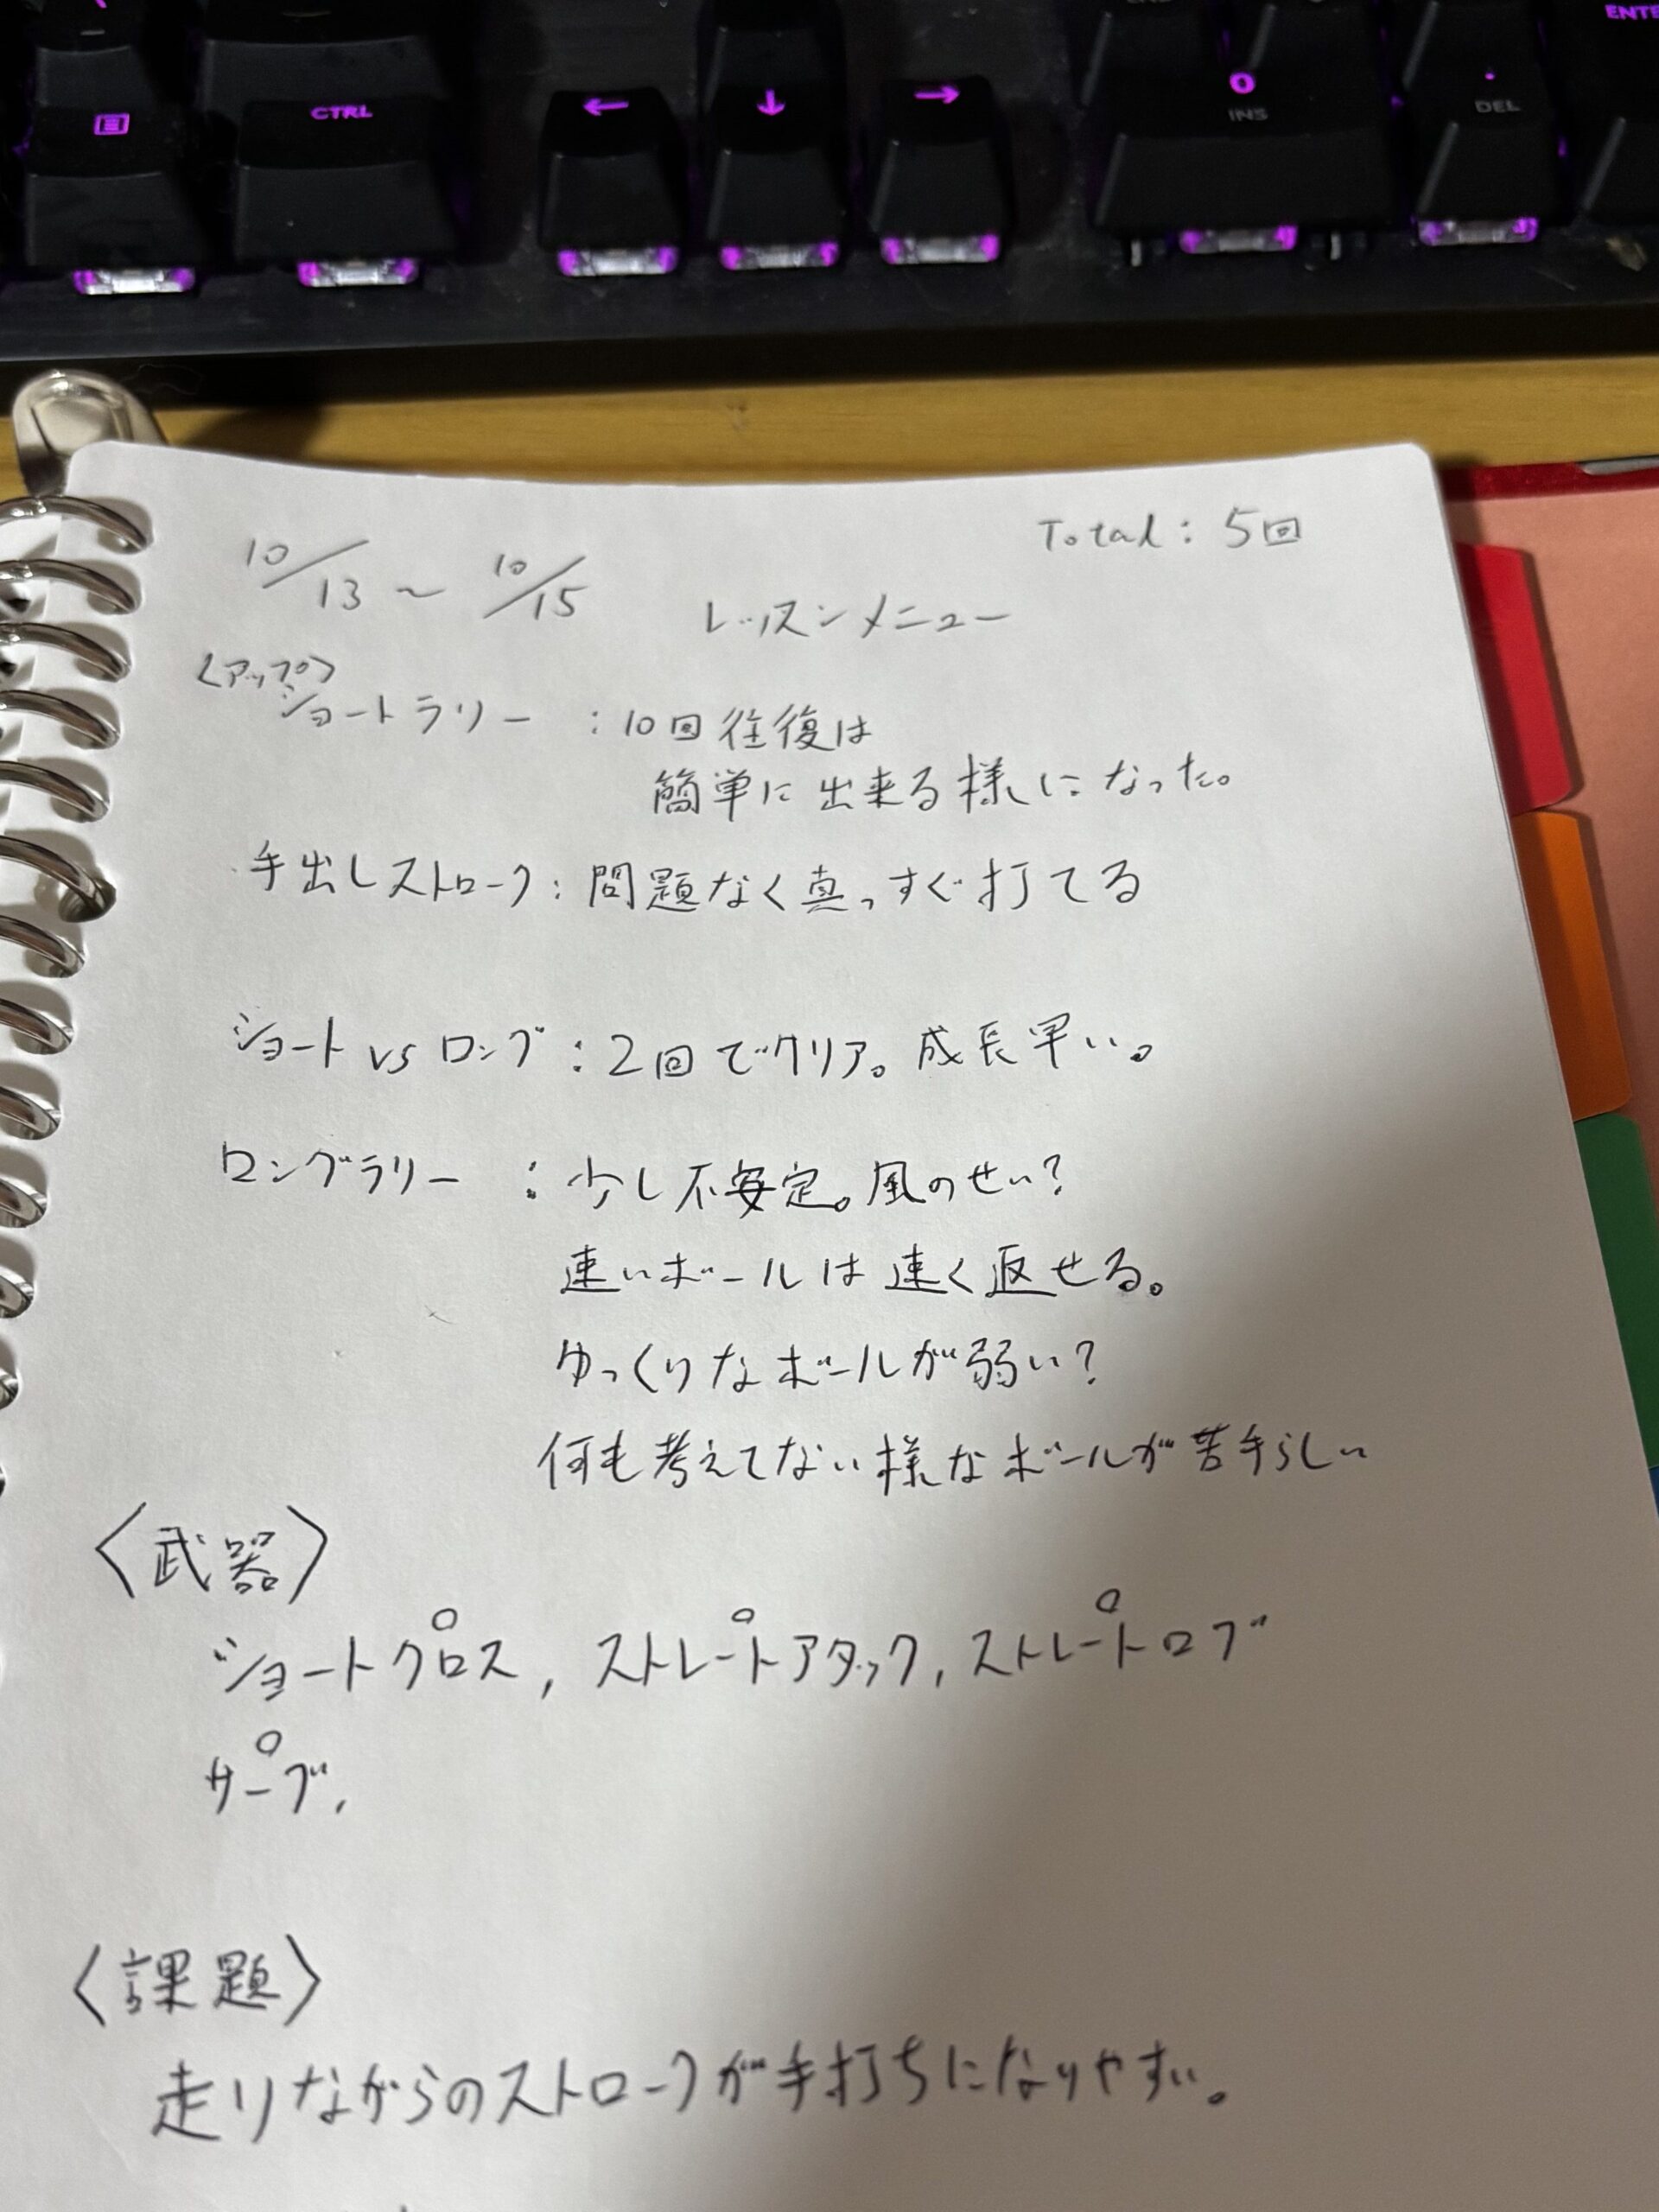 ENTE
CTRL
←
↓
→
0
INS
.
DEL
Total : 5回
10/13 ～ 10/15 レッスンメニュー
〈アップ〉
ショートラリー : 10回往復は
簡単に出来る様になった。
手出しストローク : 問題なく真っすぐ打てる
ショート vs ロング : 2回でクリア。成長早い。
ロングラリー : 少し不安定。風のせい?
速いボールは速く返せる。
ゆっくりなボールが弱い?
何も考えてない様なボールが苦手らしい
〈武器〉
ショートクロス, ストレートアタック, ストレートロブ
サーブ,
〈課題〉
走りながらのストロークが手打ちになりやすい。